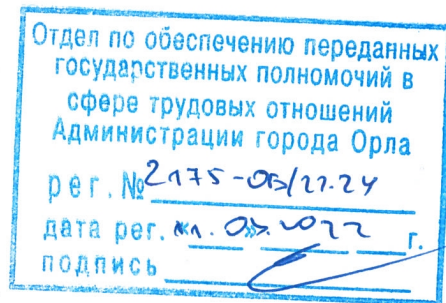 Отдел по обеспечению переданных
государственных полномочий в
сфере трудовых отношений
Администрации города Орла
рег. №2175-ОВ/21.24
дата рег. 2022 г.
подпись